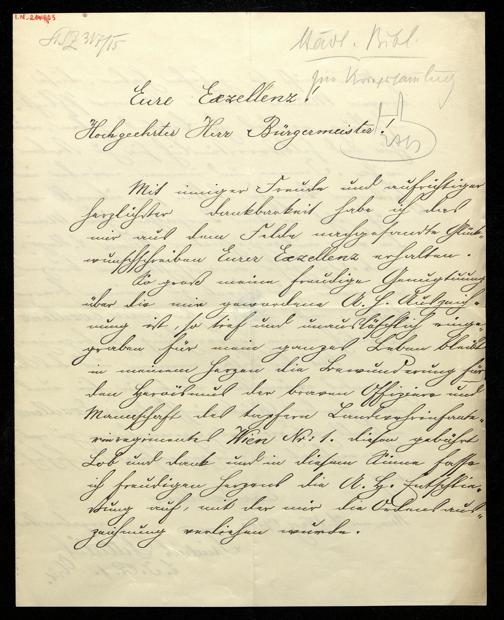 I.N. 204803
317/15
Städt. Bibl.
zur Kriegssammlung
Eure Exzellenz!
Hochgeehrter Herr Bürgermeister!
Mit inniger Freude und aufrichtiger
herzlichster dankbarkeit habe ich das
mir aus dem Felde nachgesandte Glück-
wunschschreiben Eurer Exzellenz erhalten.
So groß meine freudige Genugtuung
über die mir gewordene A. H. Auszeich-
nung ist, so tief und unauslöschlich einge-
graben für mein ganzes Leben bleibt
in meinem Herzen die Bewunderung für
den Heroismus der braven Offiziere und
Mannschaft des tapfern Landwehrinfante-
rieregimentes Wien Nr: 1. diesen gebührt
Lob und dank und in diesem Sinne fasse
ich freudigen Herzens die A. H. Entschlie-
ßung auf, mit der mir die Ordensaus-
zeichnung verliehen wurde.